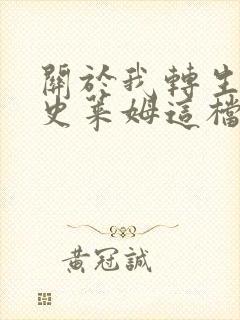 關於我轉生
史萊姆這檔
黃冠誠